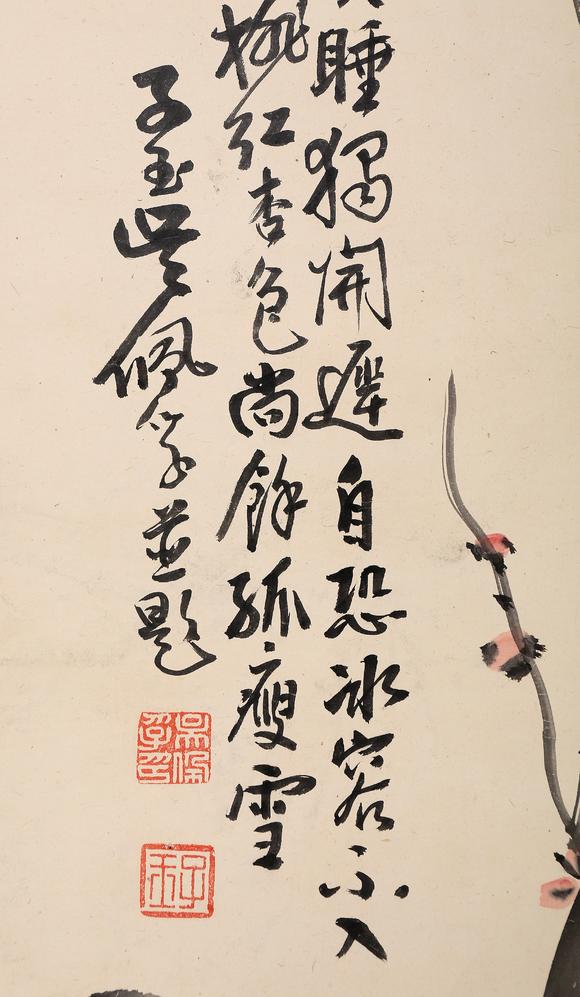 睡獨開遲自恐冰容不入
桃紅杏色尚餘孤瘦雪
子玉吳佩孚並題
吳佩孚印
子玉